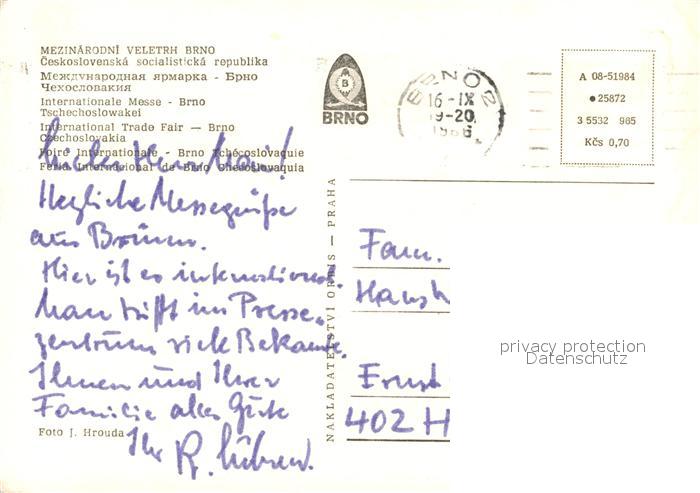 MEZINÁRODNÍ VELETRH BRNO
Československá socialistická republika
Международная ярмарка - Брно
Чехословакия
Internationale Messe - Brno
Tschechoslowakei
International Trade Fair — Brno
Czechoslovakia
Foire Internationale - Brno Tchécoslovaquie
Feria Internacional de Brno Checoslovaquia
Herzliche Messegrüße
aus Brünn.
Hier ist es international.
Man trifft im Presse-
zentrum viele Bekannte.
Ihnen und Ihrer
Familie alles Gute
Ihr R.
Foto J. Hrouda
NAKLADATELSTVÍ ORBIS — PRAHA
B
BRNO
BRNO 2
16 -IX
19-20
A 08-51984
● 25872
3 5532 985
Kčs 0,70
Fam.
Ernst
402 H
privacy protection
Datenschutz